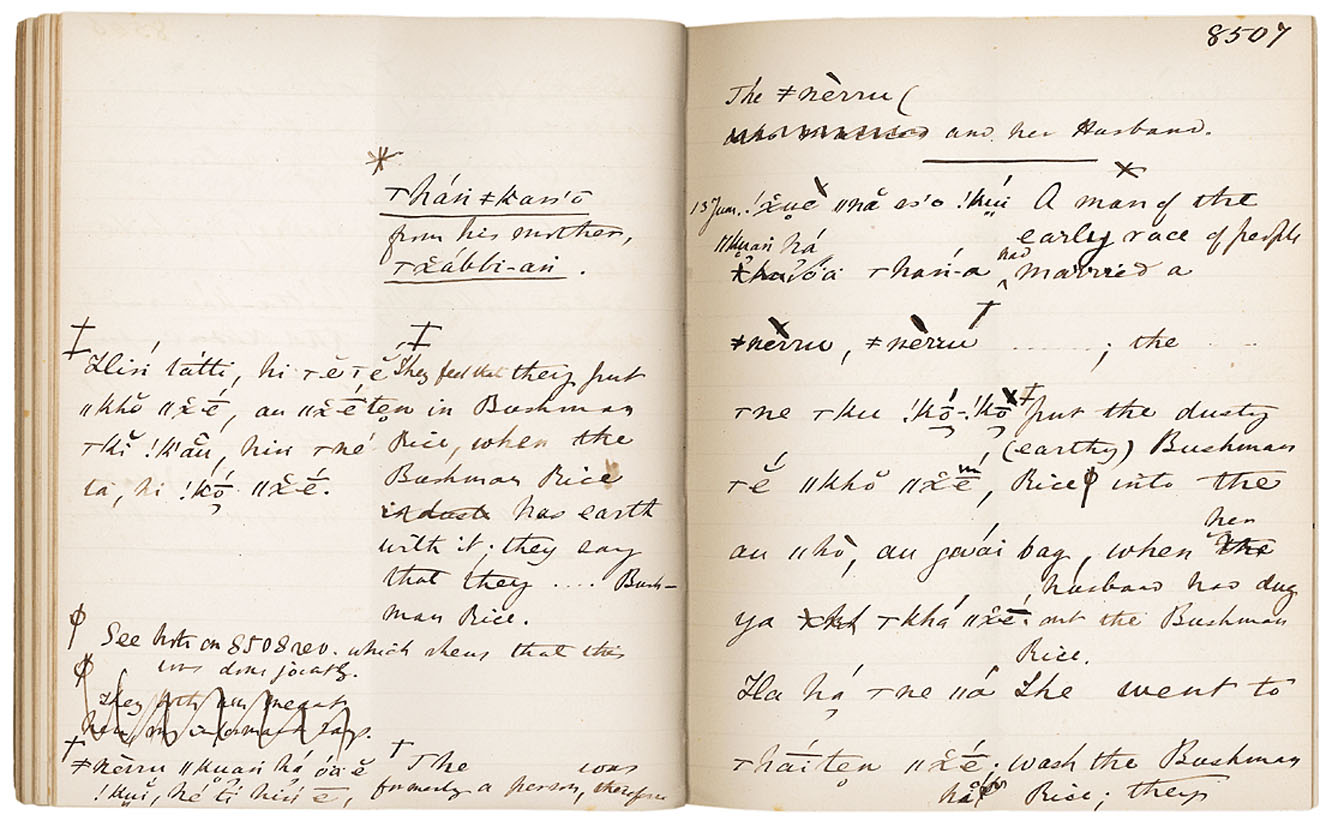 Ͳhán ǂkass'ō
from his mother,
Ͳxábbi-an.
ǂ
ǂ
Hiń tátti, hi
They feel that they put
ǁkhŏ ǁx́é, au ǁx́éten
in Bushman
ͳkĭ !k'aū, hiń ͳné
Rice, when the
ta, hi !kṓ ǁx́é.
Bushman Rice
has earth
with it; they say
that they .... Bush-
man Rice.
φ See note on 8508 rev. which shews that this
was done jointly.
φ
† ǂnèrru ǁkuań há óä ĕ
!kui, hé tí hiń ē,
† The was
formerly a person, therefore
8507
The ǂnèrru (
and her Husband.
13 Jan. ǁnă ss'o !kúi
A man of the
early race of people
ǁkuań há
ͳhań-a
had
married a
ǂnèrru, ǂnèrru
........; the ....
ͳne ͳku !kṓ-!kō
put the dusty
(earthy) Bushman
ͳé ǁkhŏ ǁx́ém,
Rice φ into the
au ǁhò, au gwái
bag, when her
husband has dug
ya ͳkhá ǁx́é.
out the Bushman
Rice.
Ha há ͳne ǁá
She went to
ͳháiten ǁx́é.
wash the Bushman
Rice; they